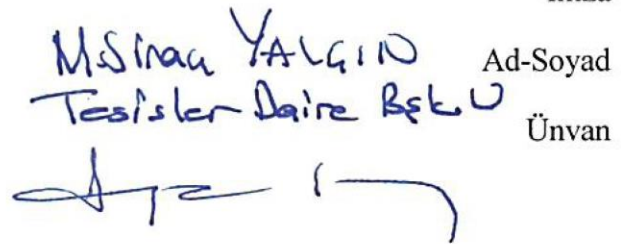 İmza
M.Siraç YALÇIN Ad-Soyad
Tesisler Daire Bşk.
Ünvan